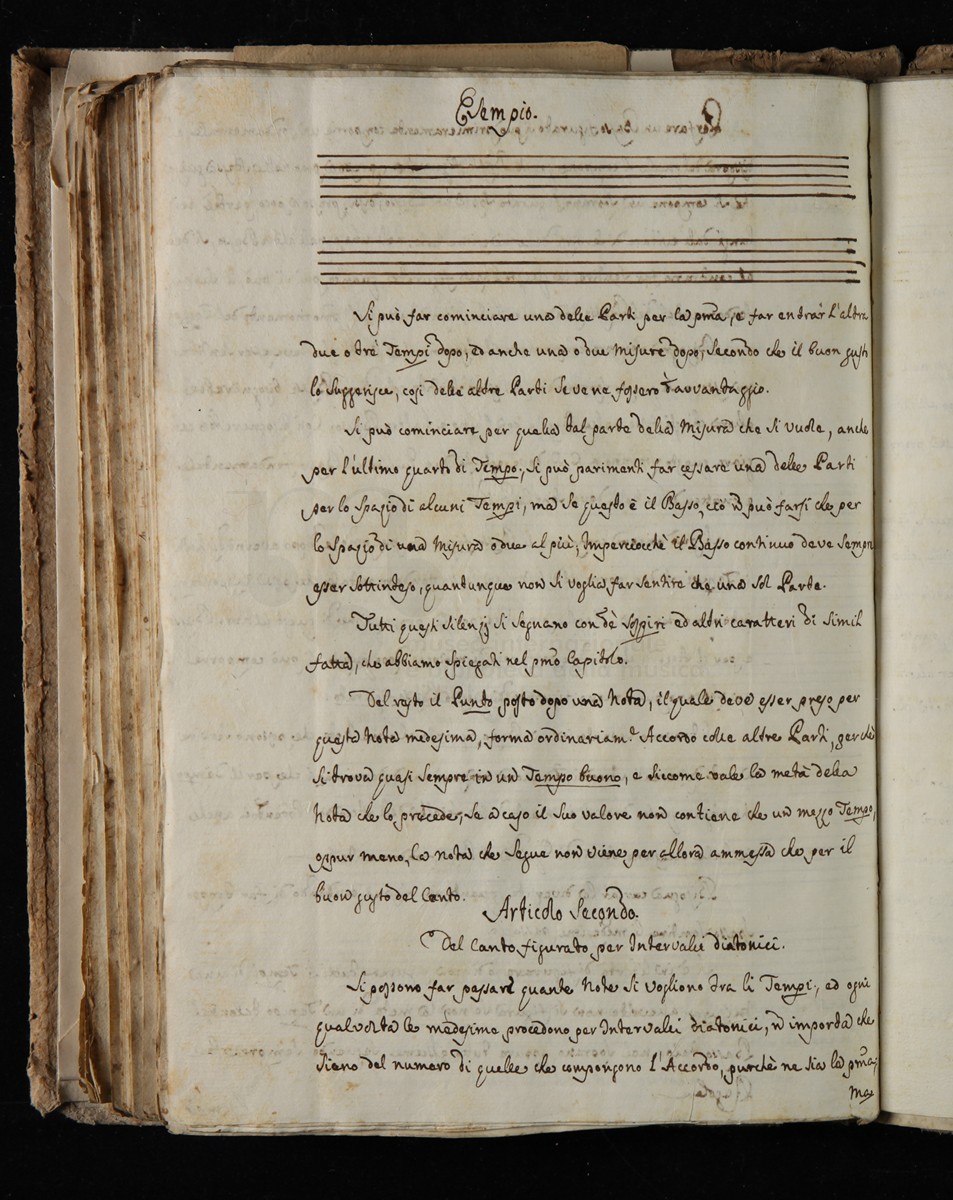 Esempio.
Si può far cominciare una delle Parti per la pma, e far entrar l'altra
due o tre Tempi dopo, ed anche una o due Misure dopo, secondo che il buon gusto
lo suggerisce, così delle altre Parti se ve ne fossero d'avvantaggio.
Si può cominciare per quella tal parte della Misura che si vuole, anche
per l'ultimo quarto di Tempo; si può parimenti far cessare una delle Parti
per lo spazio di alcuni Tempi, ma se questo è il Basso, ciò ñ può farsi che per
lo spazio di una Misura o due al più, Imperciocchè il Basso continuo deve sempre
esser sottinteso, quantunque non si voglia far sentire che una sol Parte.
Tutti questi silenzj si segnano con dè sospiri ed altri caratteri di simil
fatta, che abbiamo spiegati nel pmo Capitolo.
Del resto il Punto, posto dopo una Nota, il quale deve esser preso per
questa Nota medesima, forma ordinariam.e Accordo colle altre Parti, perchè
si trova quasi sempre in un Tempo buono, e siccome vale la metà della
Nota che lo precede, se a caso il suo valore non contiene che un mezzo Tempo,
oppur meno, la nota che segue non viene per allora ammessa che per il
buon gusto del Canto.
Articolo Secondo.
Del Canto figurato per Intervalli diatonici.
Si possono far passare quante Note si vogliono tra li Tempi, ed ogni
qualvolta le medesime procedono per Intervalli diatonici, ñ importa che
siano del numero di quelle che compongono l'Accordo, purchè ne sia la pma,
ma